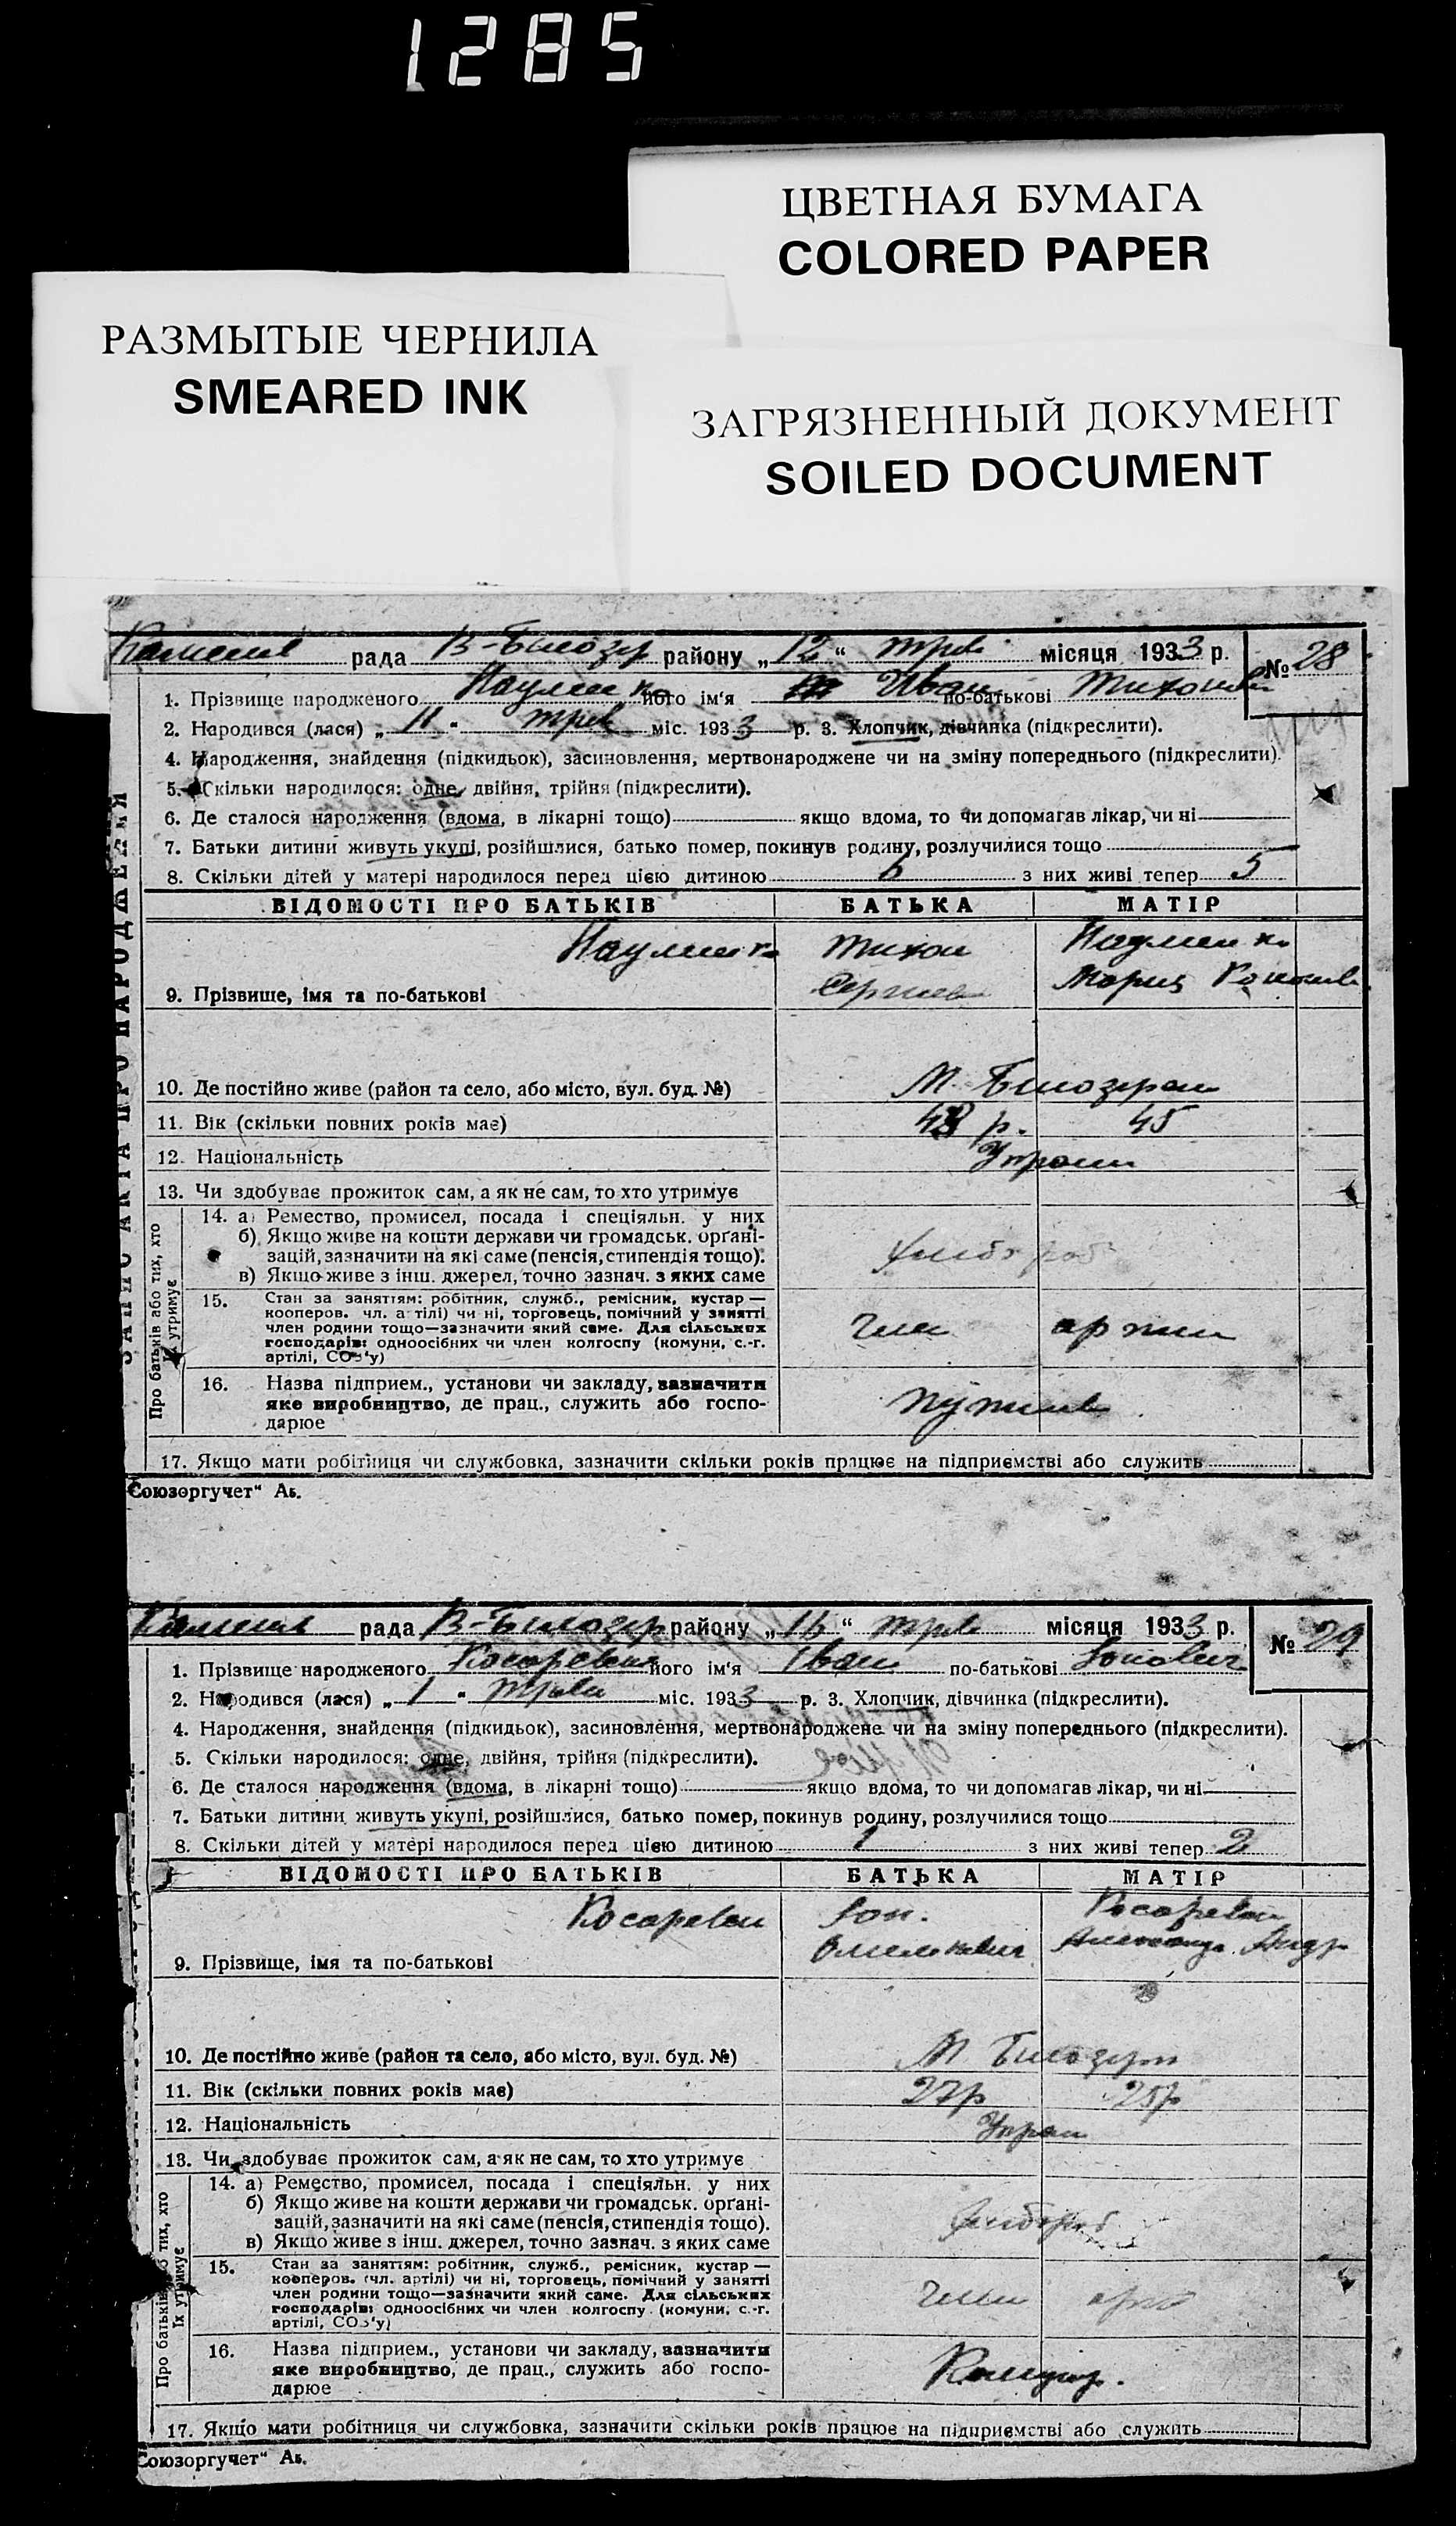 1285
ЦВЕТНАЯ БУМАГА
COLORED PAPER
РАЗМЫТЫЕ ЧЕРНИЛА
SMEARED INK
ЗАГРЯЗНЕННЫЙ ДОКУМЕНТ
SOILED DOCUMENT
рада В-Білозер району „12“ трав місяця 1933 р. № 28
1. Прізвище народженого Науменко його ім‘я Иван по-батькові
2. Народився (лася) „11“ трав міс. 1933 р. 3. Хлопчик, дівчинка (підкреслити).
4. Народження, знайдення (підкидьок), засиновлення, мертвонароджене чи на зміну попереднього (підкреслити).
5. Скільки народилося: одне, двійня, трійня (підкреслити).
6. Де сталося народження (вдома, в лікарні тощо) якщо вдома, то чи допомагав лікар, чи ні
7. Батьки дитини живуть укупі, розійшлися, батько помер, покинув родину, розлучилися тощо
8. Скільки дітей у матері народилося перед цією дитиною 6 з них живі тепер 5
ВІДОМОСТІ ПРО БАТЬКІВ БАТЬКА МАТІР
Науменко Тихон Науменко
9. Прізвище, імя та по-батькові Мария
10. Де постійно живе (район та село, або місто, вул. буд. №) М. Білозерка
11. Вік (скільки повних років має) р. 45
12. Національність Україн
13. Чи здобуває прожиток сам, а як не сам, то хто утримує
ЗАПИС АКТА ПРО НАРОДЖЕННЯ
Про батьків або тих, хто їх утримує
14. а) Ремество, промисел, посада і спеціяльн. у них
б) Якщо живе на кошти держави чи громадськ. орґані-
зацій, зазначити на які саме (пенсія, стипендія тощо).
в) Якщо живе з інш. джерел, точно зазнач. з яких саме
хлібороб
15. Стан за заняттям: робітник, служб., ремісник, кустар—
кооперов. чл. артілі) чи ні, торговець, помічний у занятті
член родини тощо—зазначити який саме. Для сільських
господарів: одноосібних чи член колгоспу (комуни, с.-г.
артілі, СОЗ‘у)
член артіл
16. Назва підприєм., установи чи закладу, зазначити
яке виробництво, де прац., служить або госпо-
дарює
17. Якщо мати робітниця чи службовка, зазначити скільки років працює на підприємстві або служить
Союзоргучет“ Аб.
рада В-Білозер району „16“ трав місяця 1933 р. № 29
1. Прізвище народженого його ім‘я Іван по-батькові
2. Народився (лася) „1“ трав міс. 1933 р. 3. Хлопчик, дівчинка (підкреслити).
4. Народження, знайдення (підкидьок), засиновлення, мертвонароджене чи на зміну попереднього (підкреслити).
5. Скільки народилося: одне, двійня, трійня (підкреслити).
6. Де сталося народження (вдома, в лікарні тощо) якщо вдома, то чи допомагав лікар, чи ні
7. Батьки дитини живуть укупі, розійшлися, батько помер, покинув родину, розлучилися тощо
8. Скільки дітей у матері народилося перед цією дитиною 1 з них живі тепер 2
ВІДОМОСТІ ПРО БАТЬКІВ БАТЬКА МАТІР
9. Прізвище, імя та по-батькові
10. Де постійно живе (район та село, або місто, вул. буд. №) М Білозерк
11. Вік (скільки повних років має) 27р 25р
12. Національність Україн
13. Чи здобуває прожиток сам, а як не сам, то хто утримує
Про батьків або тих, хто їх утримує
14. а) Ремество, промисел, посада і спеціяльн. у них
б) Якщо живе на кошти держави чи громадськ. орґані-
зацій, зазначити на які саме (пенсія, стипендія тощо).
в) Якщо живе з інш. джерел, точно зазнач. з яких саме
хлібороб
15. Стан за заняттям: робітник, служб., ремісник, кустар—
кооперов. (чл. артілі) чи ні, торговець, помічний у занятті
член родини тощо—зазначити який саме. Для сільських
господарів: одноосібних чи член колгоспу (комуни, с.-г.
артілі, СОЗ‘у)
член арт
16. Назва підприєм., установи чи закладу, зазначити
яке виробництво, де прац., служить або госпо-
дарює
17. Якщо мати робітниця чи службовка, зазначити скільки років працює на підприємстві або служить
Союзоргучет“ Аб.